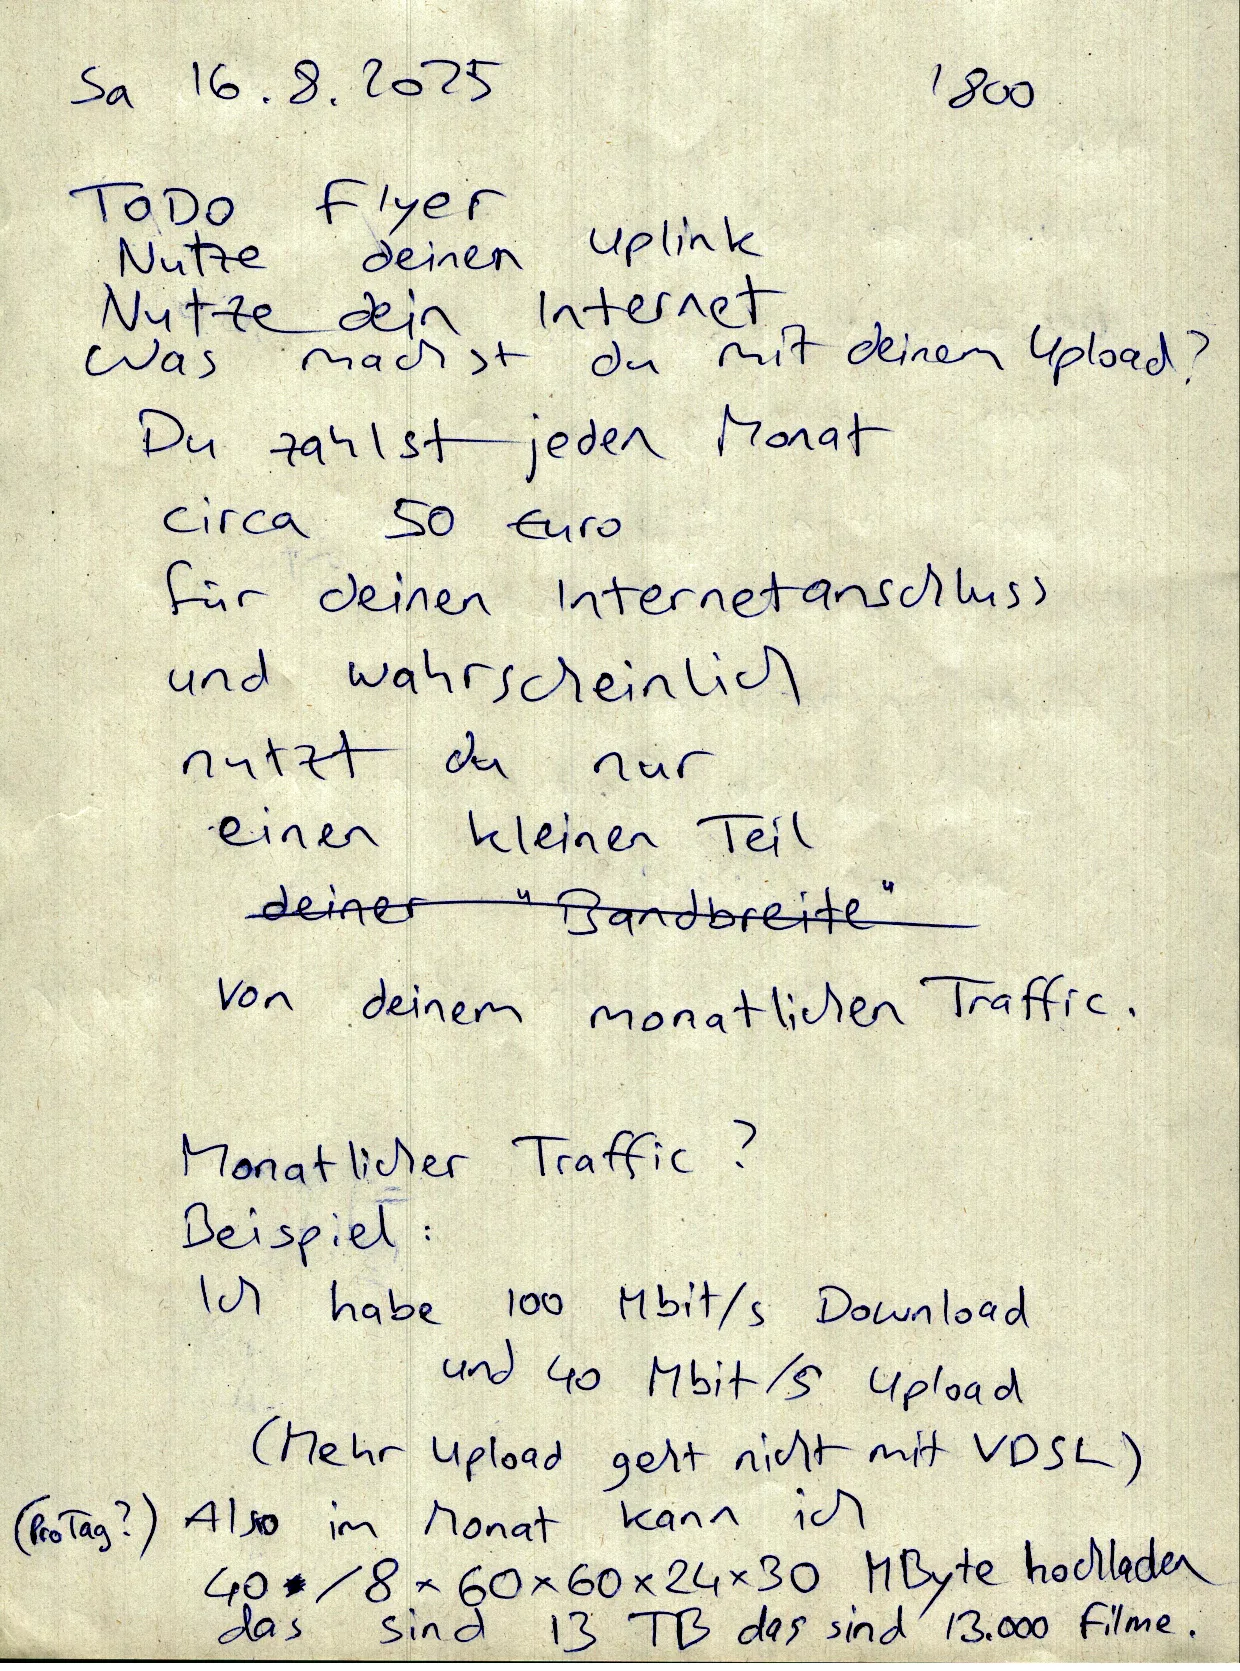 Sa 16.8.2025 1800
TODO Flyer
Nutze deinen Uplink
Nutze dein Internet
Was machst du mit deinem Upload?
Du zahlst jeden Monat
circa 50 Euro
für deinen Internetanschluss
und wahrscheinlich
nutzt du nur
einen kleinen Teil
deiner "Bandbreite"
von deinem monatlichen Traffic.
Monatlicher Traffic?
Beispiel:
Ich habe 100 Mbit/s Download
und 40 Mbit/s Upload
(Mehr Upload geht nicht mit VDSL)
(Pro Tag?) Also im Monat kann ich
40 / 8 × 60 × 60 × 24 × 30 MByte hochladen
das sind 13 TB das sind 13.000 Filme.